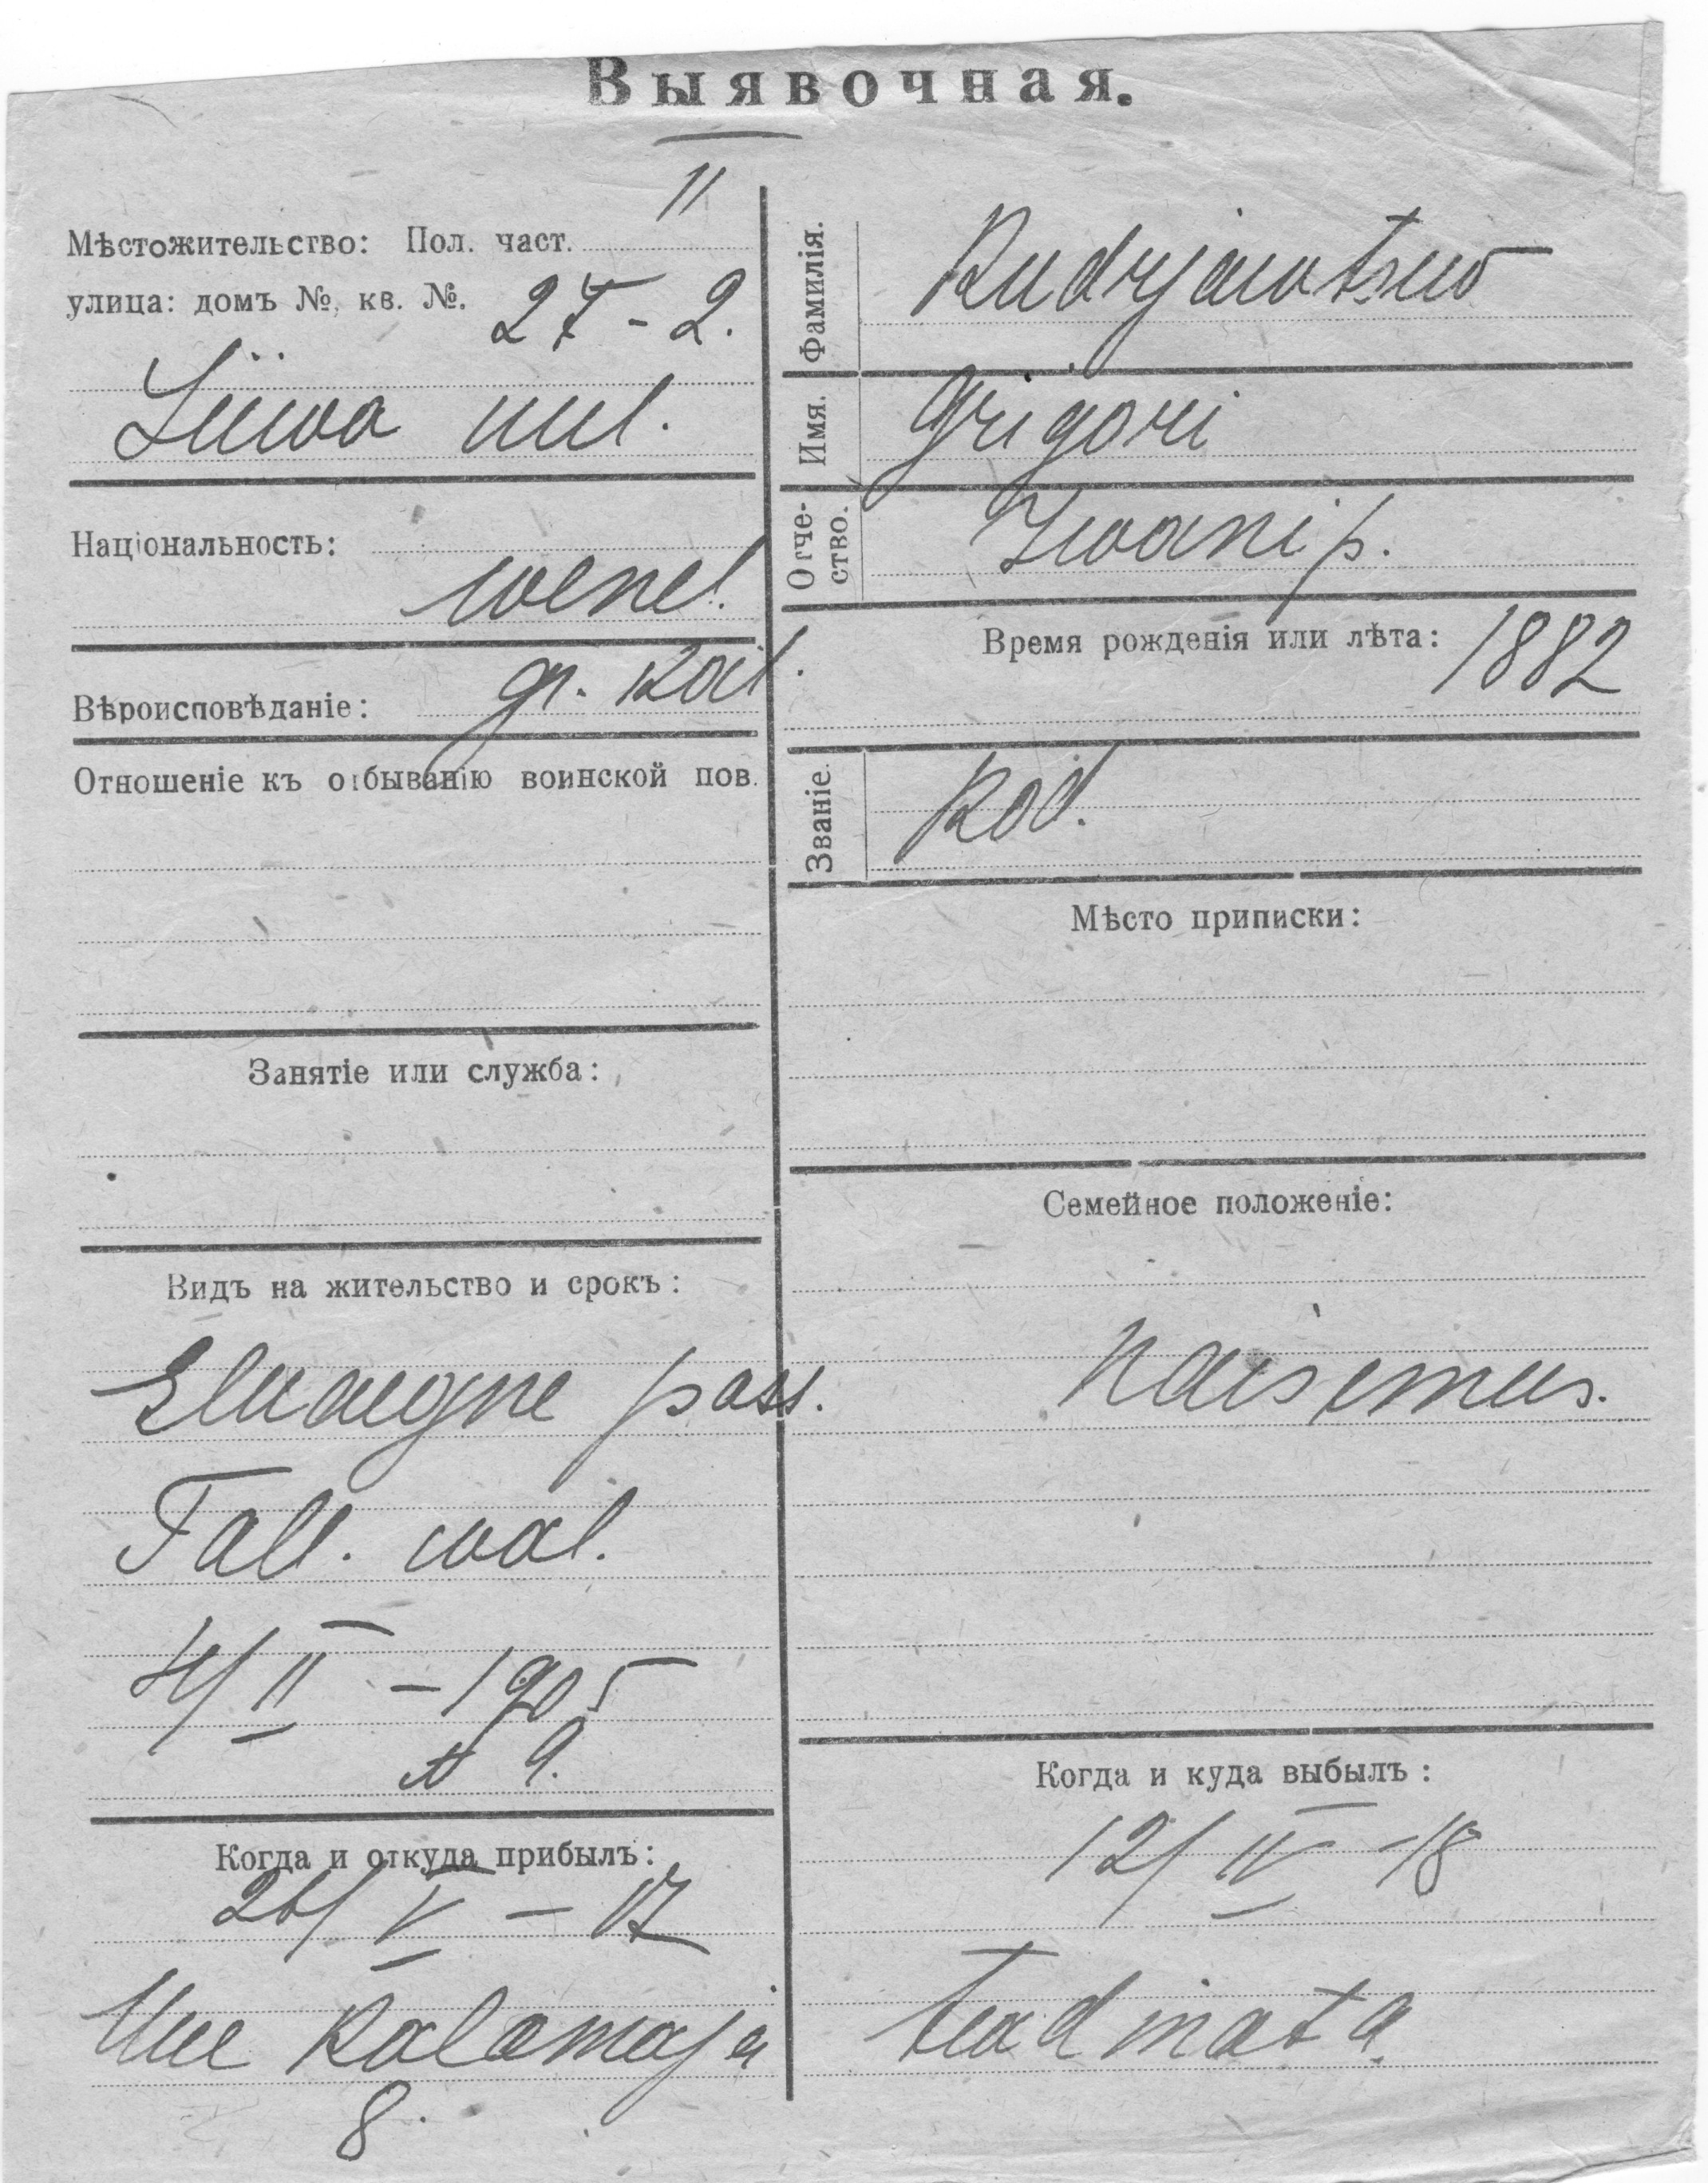 Выявочная.
11
Мѣстожительство: Пол. част.
улица: домъ №, кв. №. 27 - 2.
Liiwa uul.
Національность:
wenel.
Вѣроисповѣданіе: gr. kat.
Отношеніе къ отбыванію воинской пов.
Занятіе или служба:
Видъ на жительство и срокъ:
Eluaegne pass.
Tall. wal.
4/II - 1905
№ 9.
Когда и откуда прибылъ:
26/V - 17
Uue Kalamaja
8.
Фамилія. Kudrjawtsew
Имя. Grigori
Отчество. Iwani p.
Время рожденія или лѣта: 1882
Званіе. Kod.
Мѣсто приписки:
Семейное положеніе:
Naisemees.
Когда и куда выбылъ:
12/IV -18
teadmata.